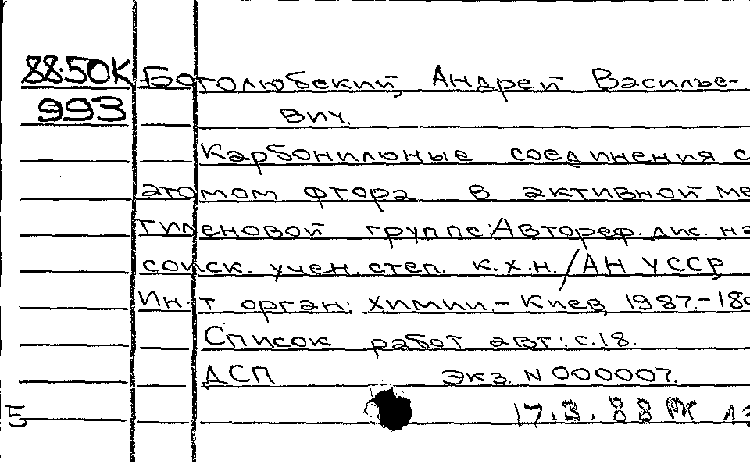 88-50К Боголюбский, Андрей Василье-
993 вич.
Карбонилюные соединения с
атомом фтора в активной ме
тиленовой группе: Автореф. дис. на
соиск. учен. степ. к.х.н. / АН УССР
Ин-т орган. химии. - Киев, 1987. - 18с
Список работ авт.: с.18.
ДСП Экз. N 000007.
Б 17.3.88